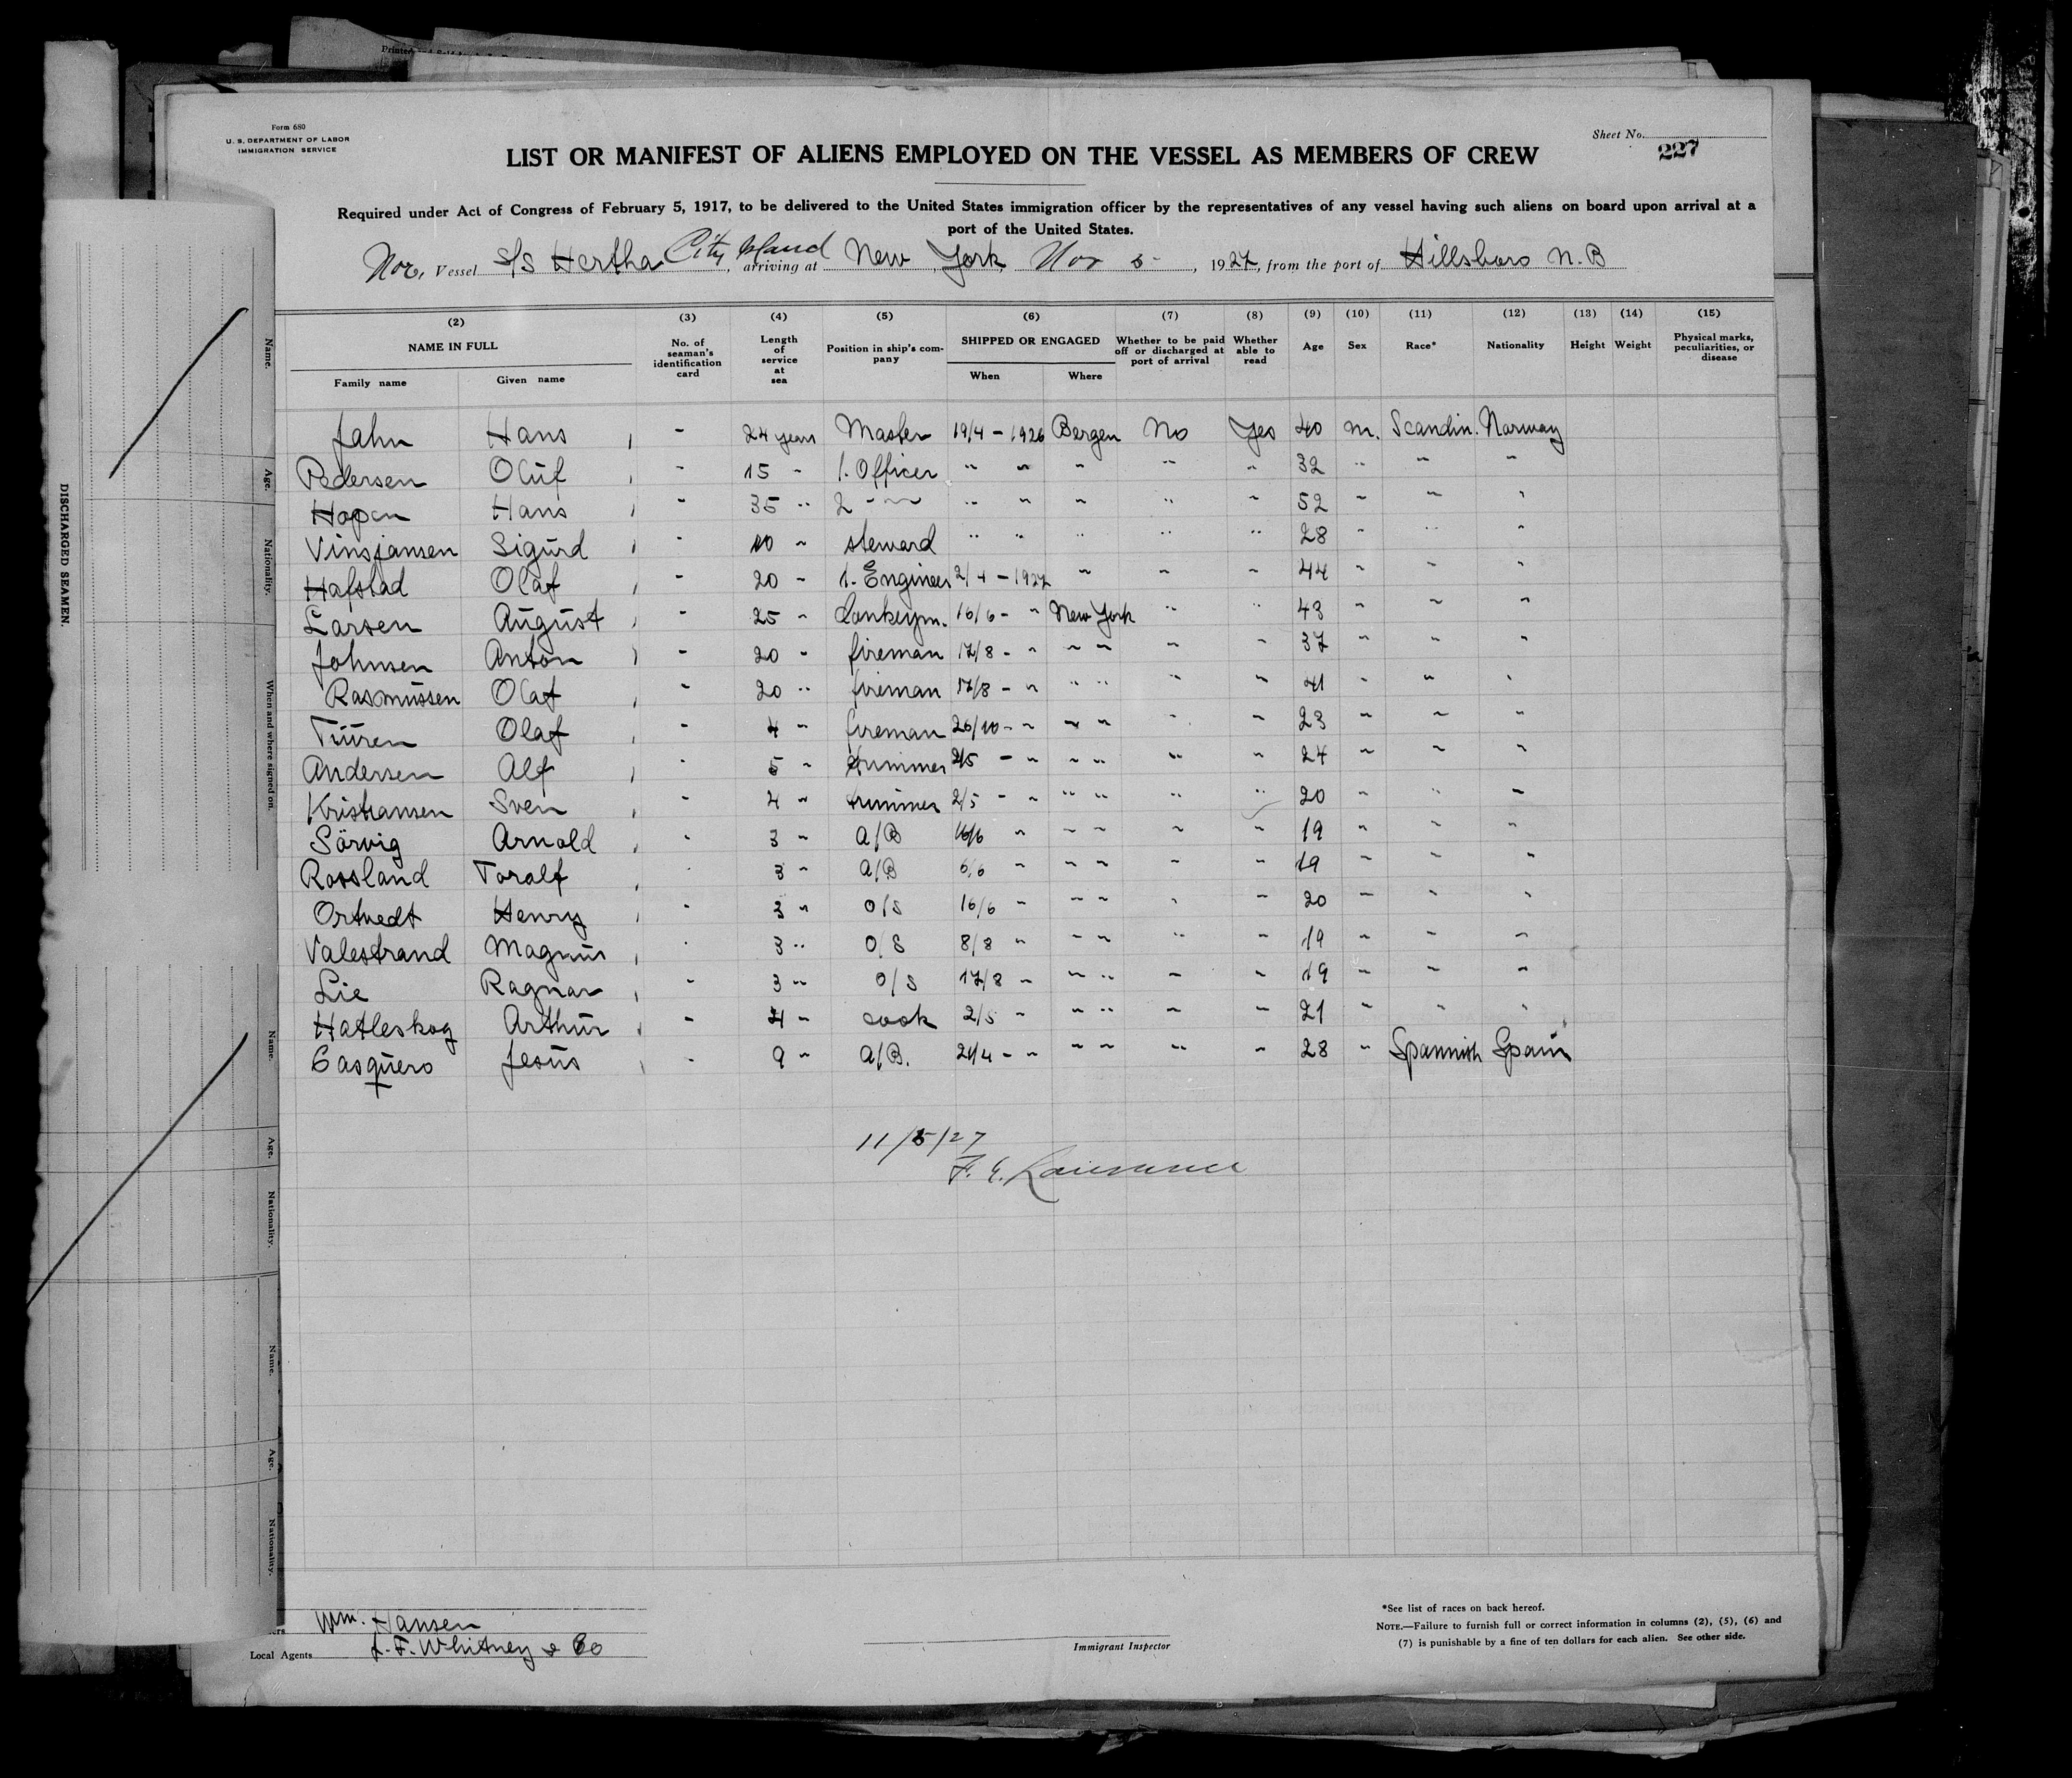 Form 680
U. S. DEPARTMENT OF LABOR
IMMIGRATION SERVICE
Sheet No.
227
LIST OR MANIFEST OF ALIENS EMPLOYED ON THE VESSEL AS MEMBERS OF CREW
Required under Act of Congress of February 5, 1917, to be delivered to the United States immigration officer by the representatives of any vessel having such aliens on board upon arrival at a
port of the United States.
Nor. Vessel S/S Hertha City Island, arriving at New York, Nov 5, 1927, from the port of Hillsboro N.B
(2) (3) (4) (5) (6) (7) (8) (9) (10) (11) (12) (13) (14) (15)
NAME IN FULL No. of seaman's identification card Length of service at sea Position in ship's company SHIPPED OR ENGAGED Whether to be paid off or discharged at port of arrival Whether able to read Age Sex Race* Nationality Height Weight Physical marks, peculiarities, or disease
Family name Given name When Where
Jahn Hans - 24 years Master 19/4 - 1926 Bergen No Yes 40 m. Scandin. Norway
Pedersen Oluf - 15 " 1. Officer " " " " " 32 " " "
Hopen Hans - 35 " 2 " " " " " " 52 " " "
Vinsjansen Sigurd - 10 " steward " " " " " 28 " " "
Hafstad Olaf - 20 " 1. Engineer 2/4 - 1927 " " " 44 " " "
Larsen August - 25 " Donkeym. 16/6 - " New York " " 43 " " "
Johnsen Anton - 20 " fireman 17/8 - " " " " " 37 " " "
Rasmussen Olaf - 20 " fireman 17/8 - " " " " " 41 " " "
Olaf - 4 " fireman 26/10 - " " " " " 23 " " "
Andersen Alf - 5 " trimmer 2/5 - " " " " " 24 " " "
Kristiansen Sven - 4 " trimmer 2/5 - " " " " " 20 " " "
Sörvig Arnold - 3 " A/B 16/6 " " " " " 19 " " "
Rossland Toralf - 3 " A/B 6/6 " " " " " 19 " " "
Ortvedt Henry - 3 " O/S 16/6 " " " " " 20 " " "
Valestrand Magnus - 3 " O/S 8/8 " " " " " 19 " " "
Lie Ragnar - 3 " O/S 17/8 " " " " " 19 " " "
Hatleskog Arthur - 4 " cook 2/5 - " " " " " 21 " " "
Casquero Jesus - 9 " A/B. - " " " " " 28 " Spannish Spain
11/5/27
Wm. Hansen
Local Agents J. F. Whitney & Co
Immigrant Inspector
*See list of races on back hereof.
NOTE.—Failure to furnish full or correct information in columns (2), (5), (6) and
(7) is punishable by a fine of ten dollars for each alien. See other side.
DISCHARGED SEAMEN.
Name.
Age.
Nationality.
When and where signed on.
Name.
Age.
Nationality.
Name.
Age.
Nationality.